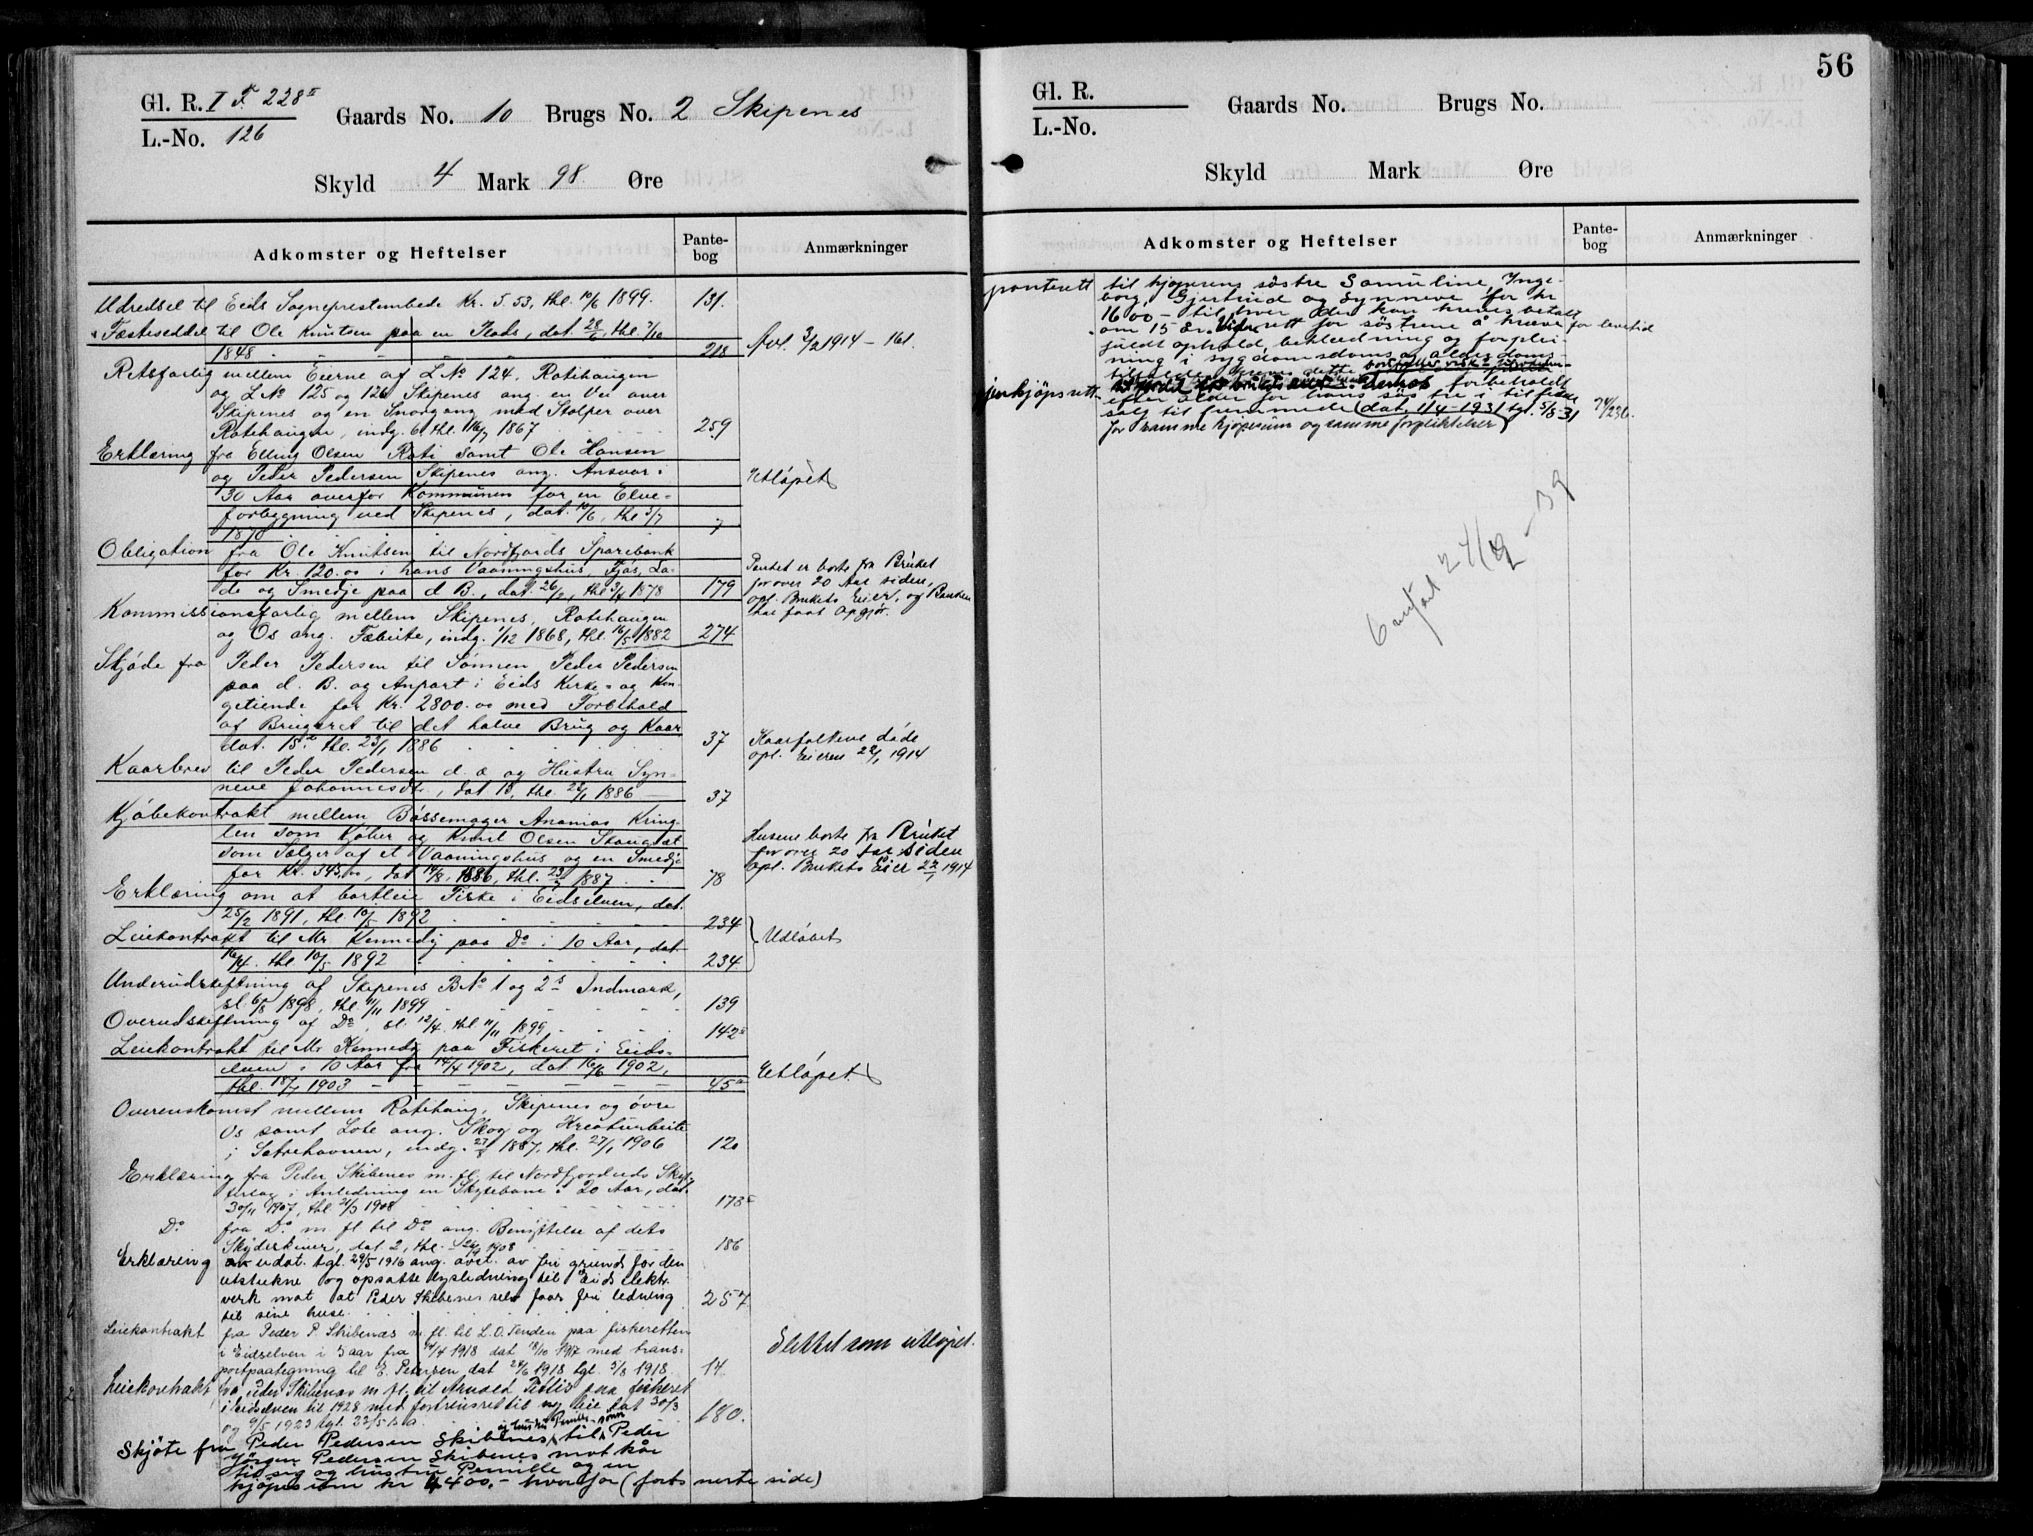 Gl. R. I F. 228 II
L.-No. 126
Gaards No. 10 Brugs No. 2 Skipenes
Skyld 4 Mark 98 Øre
Adkomster og Heftelser
Pante-
bog
Anmærkninger
Udredsel til Eids Sogneprestembede Kr. 5.53, thl. 10/6 1899. 131.
Fæsteseddel til Ole Knutsen paa en Plads, dat. 28/6, thl. 7/10
1848 218 Avl. 3/2 1914 - 161.
Retsforlig mellem Eierne af L No 124, Rotihaugen
og L No 125 og 126 Skipenes ang. en Vei over
Skipenes og en Snorgang med Stolper over
Rotihaugen, indg. 6, thl. 16/7 1867 259
Erklæring fra Elling Olsen Roti samt Ole Hansen
og Peder Pedersen Skipenes ang. Ansvar i
30 Aar overfor Kommunen for en Elve-
forbygning ved Skipenes, dat. 10/6, thl. 3/7
1870 7
Utløpet
Obligation fra Ole Knutsen til Nordfjords Sparebank
for Kr. 120.00 i hans Vaaningshus, Fjøs, La-
de og Smedje paa d. B., dat. 26/2, thl. 3/4 1878 179
Pantet er borte fra Bruket
for over 20 Aar siden,
opl. Brukets Eier, og Banken
har faat Opgjør.
Kommissionsforlig mellem Skipenes, Rotehaugen
og Os ang. Fæbeite, indg. 1/12 1868, thl. 16/5 1882 274
Skjøde fra Peder Pedersen til Sønnen Peder Pedersen
paa d. B. og Anpart i Eids Kirke- og Kon-
getiende for Kr. 2800.00 med Forbehold
af Brugsret til det halve Brug og Kaar
dat. 15, thl. 23/1 1886 37
Kaarfolkene døde
opl. Eieren 22/1 1914
Kaarbrev til Peder Pedersen d. æ og Hustru Syn-
neve Johannesdtr, dat 15, thl. 22/1 1886 37
Kjøbekontrakt mellem Bøssemager Ananias Kring-
len som Kjøber og Knut Olsen Skaugsæt
som Sælger af et Vaaningshus og en Smedje
for Kr. 345.00, dat 14/8, 1886, thl. 23/3 1887 78
Husene borte fra Bruket
for over 20 Aar siden
opl. Brukets Eier 22/1 1914
Erklæring om at bortleie Fiske i Eidselven, dat.
25/2 1891, thl. 10/5 1892 234
Leiekontrakt til Mr Kennedy paa Do i 10 Aar, dat
16/4. thl 10/5 1892 234
Udløbet
Underudskiftning af Skipenes B No 1 og 2s Indmark,
sl. 6/8 1898, thl. 11/11 1899 139
Overudskiftning af Do, sl. 12/4, thl 11/11 1899 142
Leiekontrakt til Mr Kennedy paa Fiskeret i Eids-
elven i 10 Aar fra 14/4 1902, dat 16/6 1902,
thl. 18/4 1903 45
Utløpet
Overenskomst mellem Rotihaug, Skipenes og øvre
Os samt Lote ang. Skog og Kreaturbeite
i Sætrehavnen, indg. 1887, thl. 27/1 1906 120
Erklæring fra Peder Skibenes m. fl. til Nordfjordeids Skyt-
terlag i Anledning en Skytebane i 20 Aar, dat.
30/11 1907, thl. 21/3 1908 173
Do fra Do m fl til Do ang. Benyttelse af dets
Skyderskiver, dat. 2, thl. 24/4 1908 186
Erklæring av udat. tgl. 29/5 1916 ang. avst. av fri grund for den
utstukne og opsatte lysledning til Eids elektr.
verk mot at Peder Skibenes selv faar fri ledning
til sine huse. 257
Leiekontrakt fra Peder P. Skibenæs m. fl. til L. O. Tenden paa fiskeretten
i Eidselven i 5 aar fra 14/4 1918 dat 18/10 1917 med trans-
portpaategning til E. Petersen dat 24/6 1918 tgl. 5/8 1918 14
Slettet som utløpet.
Leiekontrakt fra Peder Skibenæs m. fl. til Arnold Pitlis paa fiskeret
i eidselven til 1928 med fortrinsret til ny leie dat 30/3
og 9/5 1923 tgl. 23/5 s. a. 180.
og hustru Pernille sønn
Skjøte fra Peder Pedersen Skibenes til Peder
Jørgen Pedersen Skibenes mot kår
til sig og hustru Pernille og en
kjøpesum kr 4400,- hvorfor (forts neste side)
56
Gl. R.
L.-No.
Gaards No. Brugs No.
Skyld Mark Øre
Adkomster og Heftelser
Pante-
bog
Anmærkninger
panterett til kjøperens søstre Samuline, Inge-
borg, Gjertrud og Synneve for kr
1600 - til hver der kan kreves betalt
om 15 år. Videre rett for søstrene å kreve for levetid
fuldt ophold, beklædning og forplei-
ning i sygdoms og alderdoms-
forkjøpsrett forbeholdt
efter alder for hans søstre i tilfelde
salg til fremmede (dat. 11/4-1931 tgl. 5/8-31 74/236.
for samme kjøpesum og samme forpliktelser)
24/2 - 39